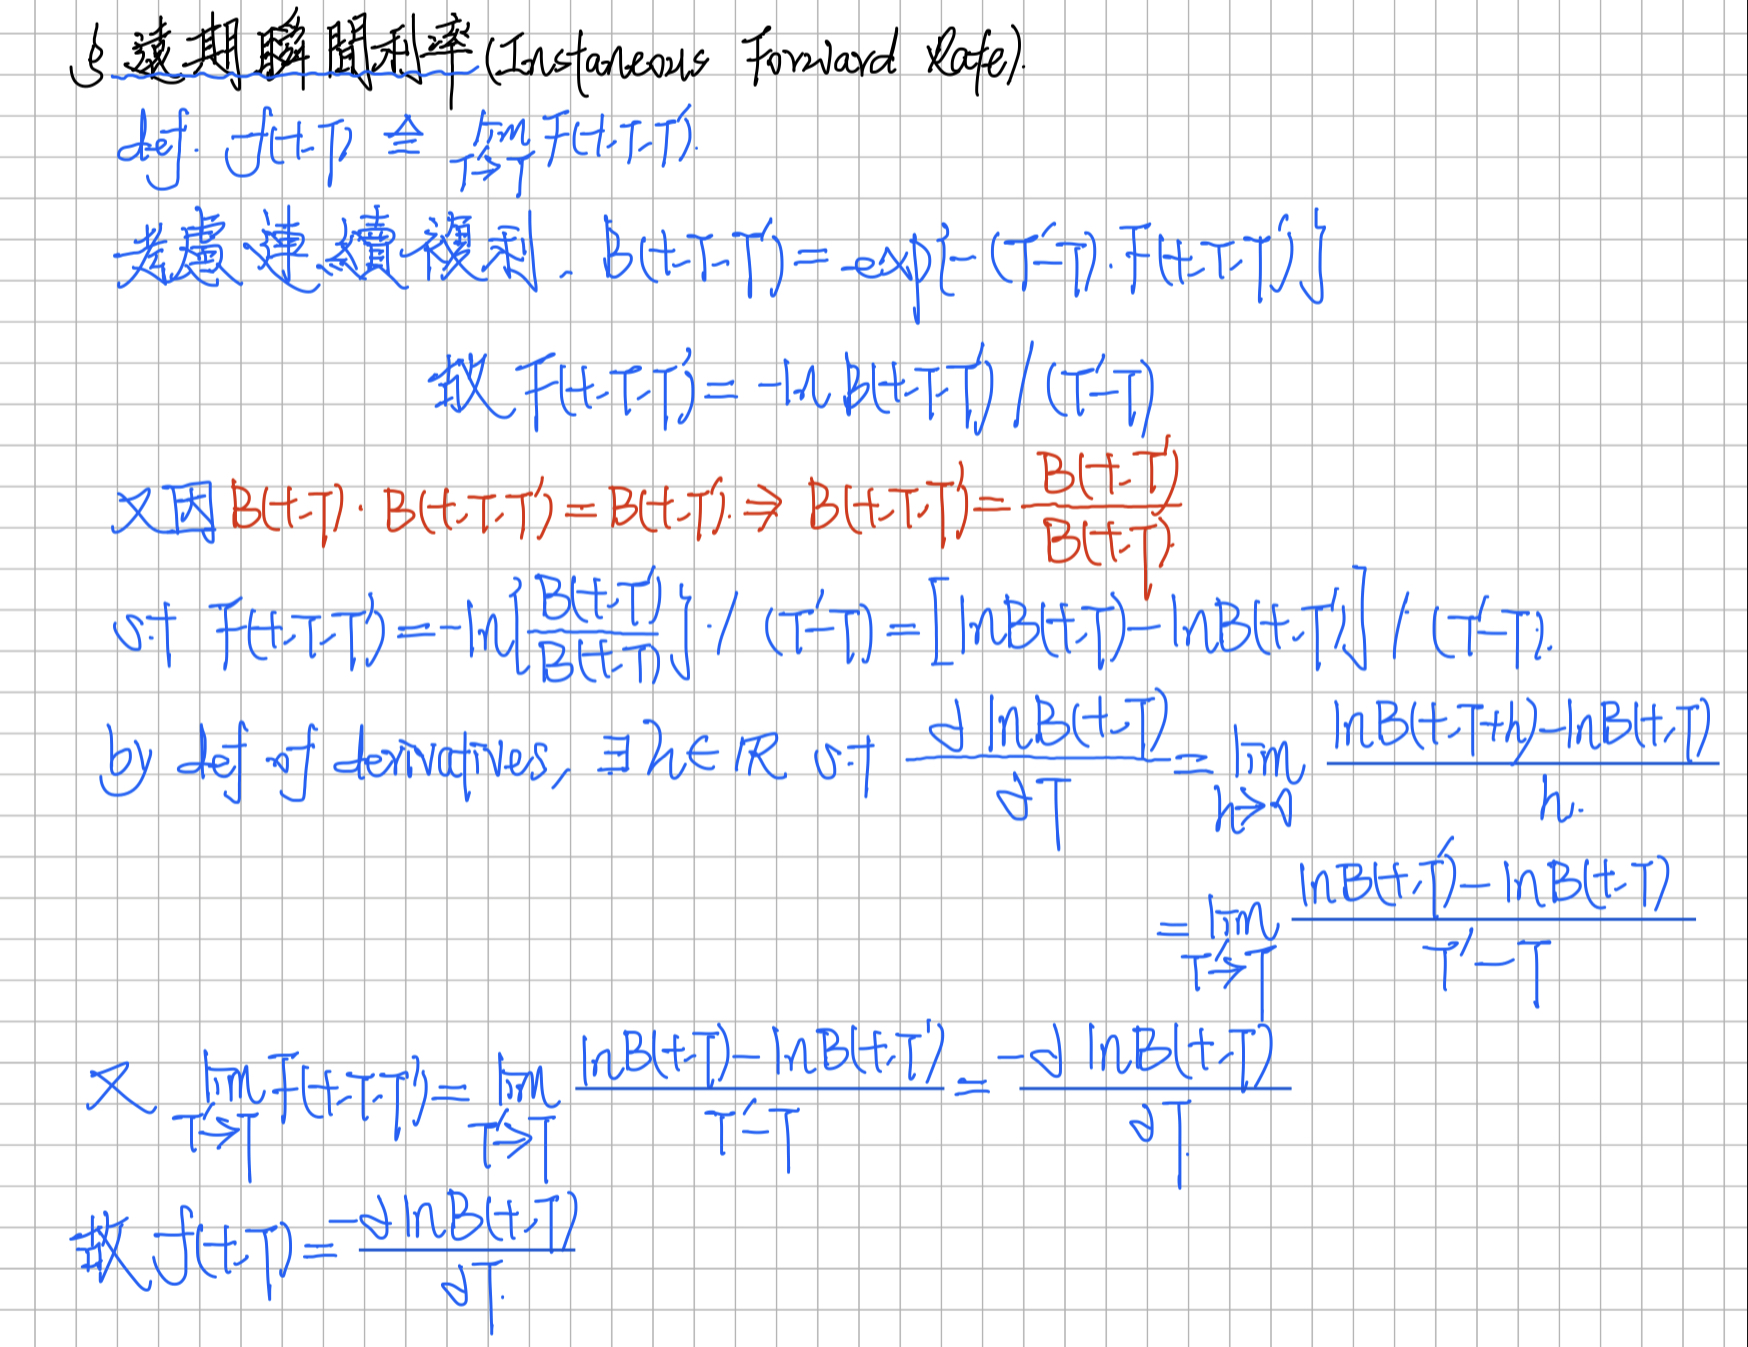 § 遠期瞬間利率 (Instaneous Forward Rate).
def. f(t,T) ≙ lim_{T'→T} F(t,T,T').
考慮連續複利、B(t,T,T') = exp{-(T'-T)·F(t,T,T')}
故 F(t,T,T') = -ln B(t,T,T') / (T'-T)
又因 B(t,T)·B(t,T,T') = B(t,T'). ⇒ B(t,T,T') = B(t,T') / B(t,T).
s.t F(t,T,T') = -ln{B(t,T') / B(t,T)} / (T'-T) = [lnB(t,T) - lnB(t,T')] / (T'-T).
by def of derivatives, ∃h∈ℝ s.t ∂lnB(t,T) / ∂T = lim_{h→0} lnB(t,T+h)-lnB(t,T) / h.
= lim_{T'→T} lnB(t,T') - lnB(t,T) / T'-T
又 lim_{T'→T} F(t,T,T') = lim_{T'→T} lnB(t,T) - lnB(t,T') / T'-T = -∂lnB(t,T) / ∂T.
故 f(t,T) = -∂lnB(t,T) / ∂T.